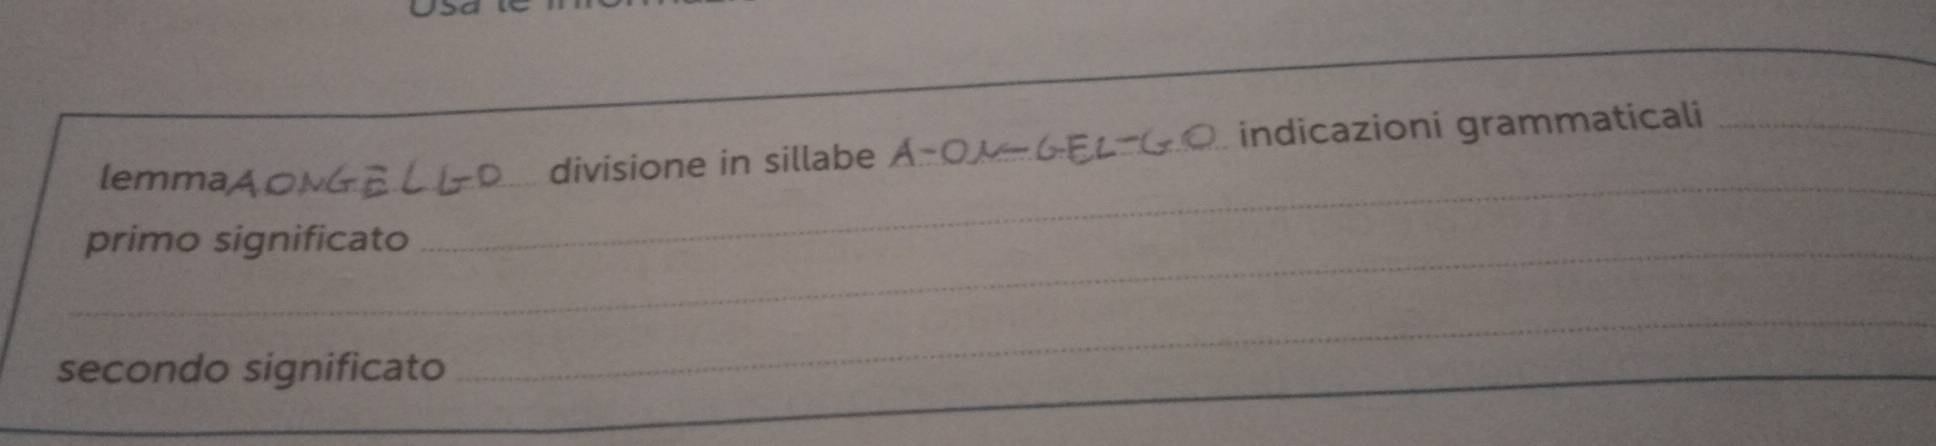 Usa le
lemma AONGELGO divisione in sillabe A-ON-GEL-GO indicazioni grammaticali
primo significato
secondo significato